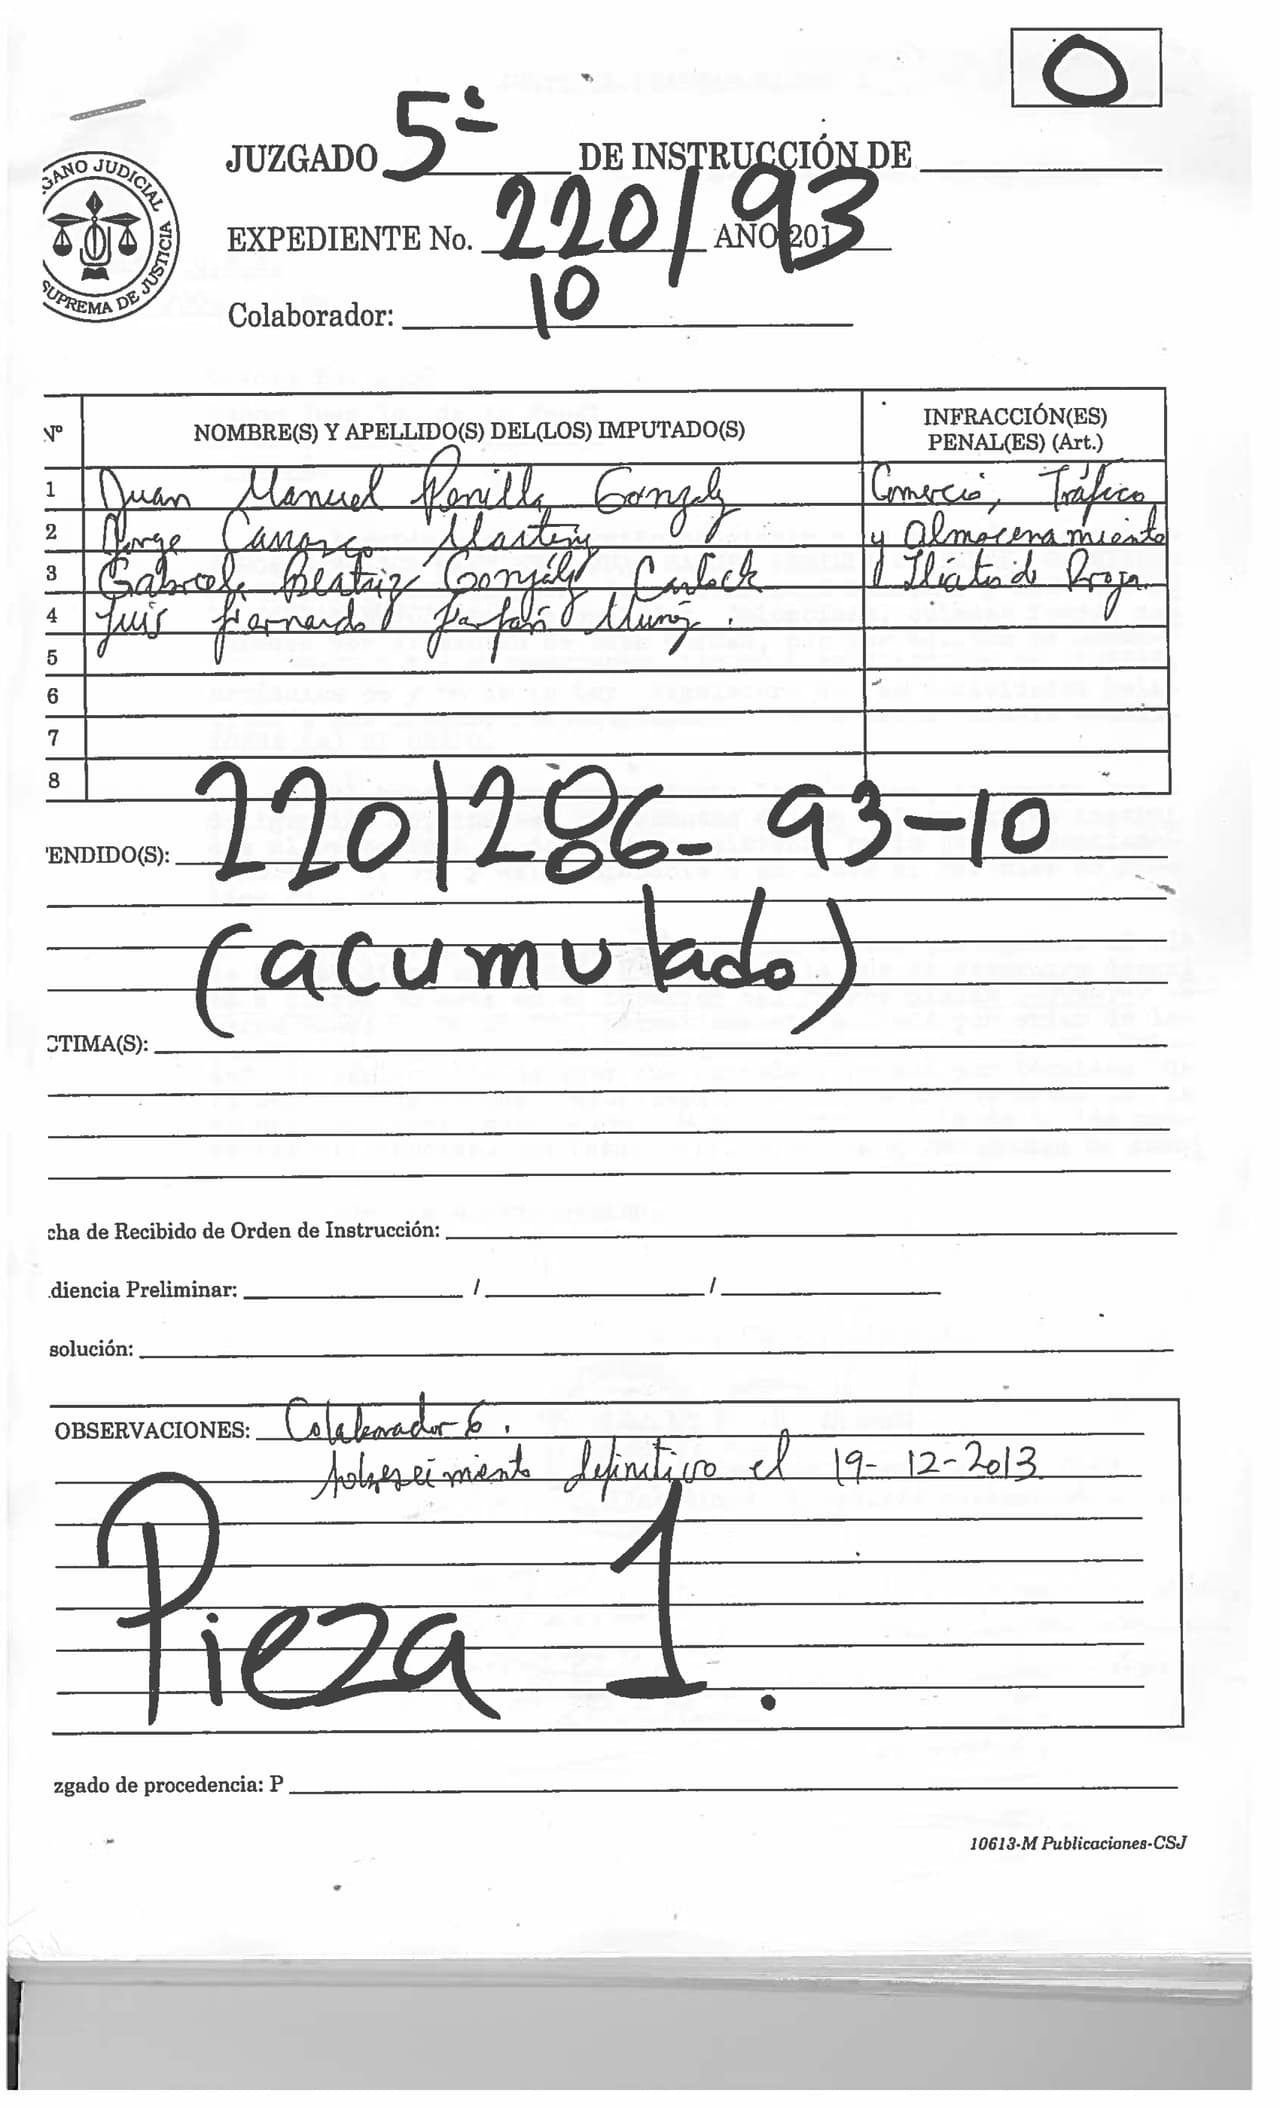 O
JUZGADO 5º DE INSTRUCCIÓN DE
ÓRGANO JUDICIAL
SUPREMA DE JUSTICIA
EXPEDIENTE No. 220/93 AÑO 201
Colaborador: 10
Nº NOMBRE(S) Y APELLIDO(S) DEL(LOS) IMPUTADO(S) INFRACCIÓN(ES) PENAL(ES) (Art.)
1 Juan Manuel Bonilla Gonzalz Comercio, Tráfico
2 Jorge Carrasco Martínez y Almacenamiento
3 Gabriela Beatriz González Ilícitos de Droga.
4 Luis Fernando Farfán Muñoz.
5
6
7
8
'ENDIDO(S): 220/206-93-10
(acumulado)
CTIMA(S):
cha de Recibido de Orden de Instrucción:
diencia Preliminar: / /
solución:
OBSERVACIONES: Colaborador 6.
sobreseimiento definitivo el 19-12-2013
Pieza 1.
zgado de procedencia: P
10613-M Publicaciones-CSJ